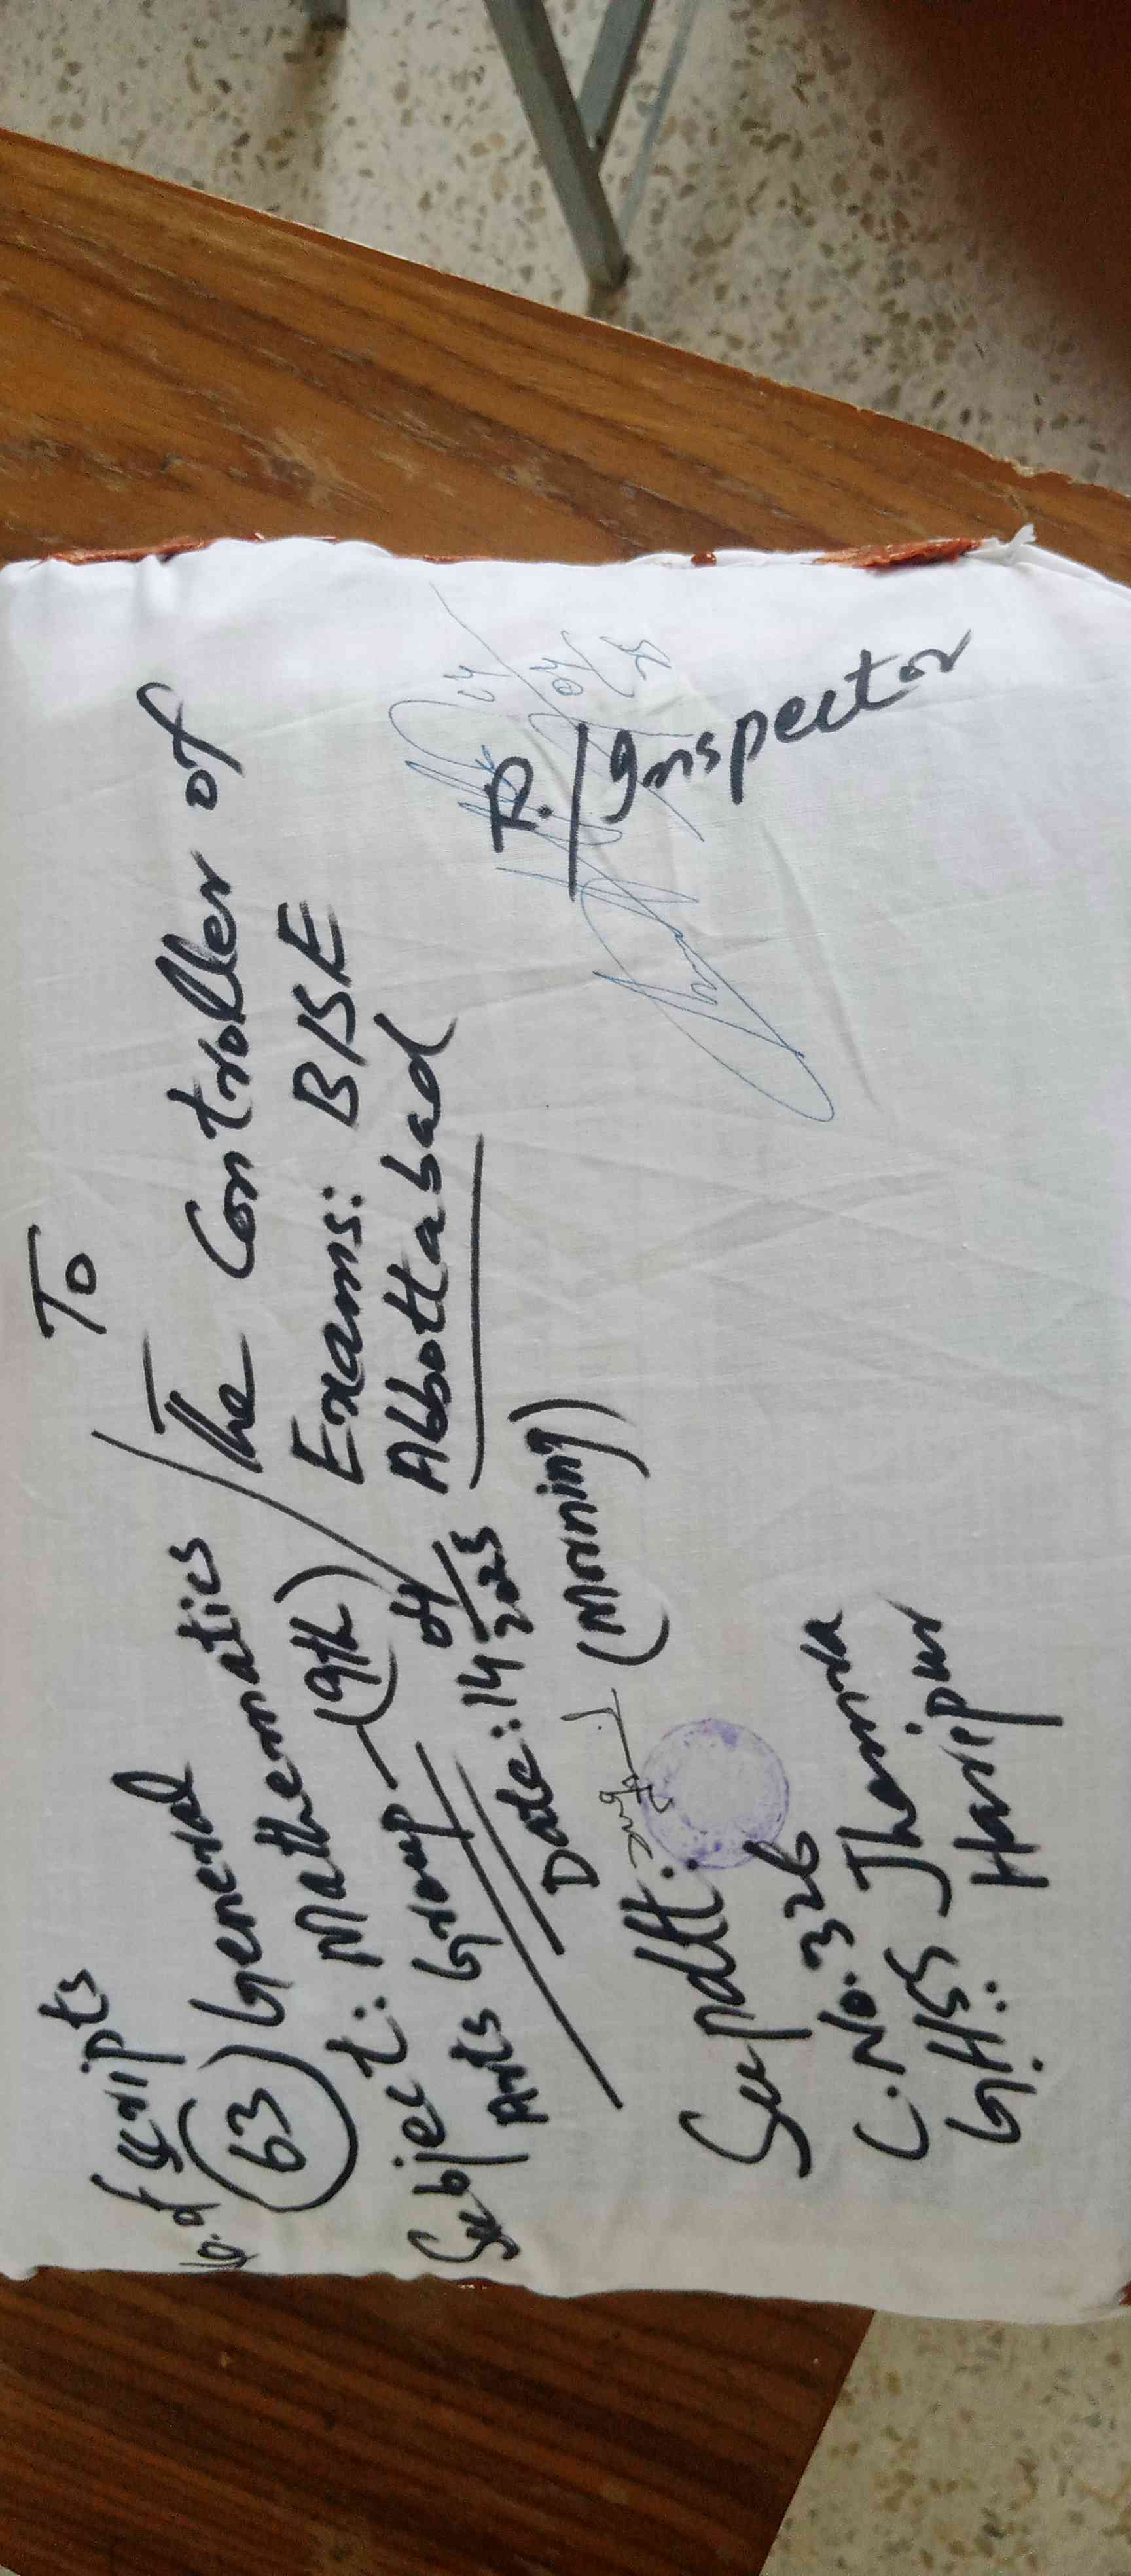 To
The Controller of
Exams: BISE
Abbottabad
No. of scripts
63
General
Subject: Mathematics
Arts Group (9th)
Date: 14/04/2025
(Morning)
Supdtt:
C.No. 326
GHS Jhamra
Haripur
R. / Inspector